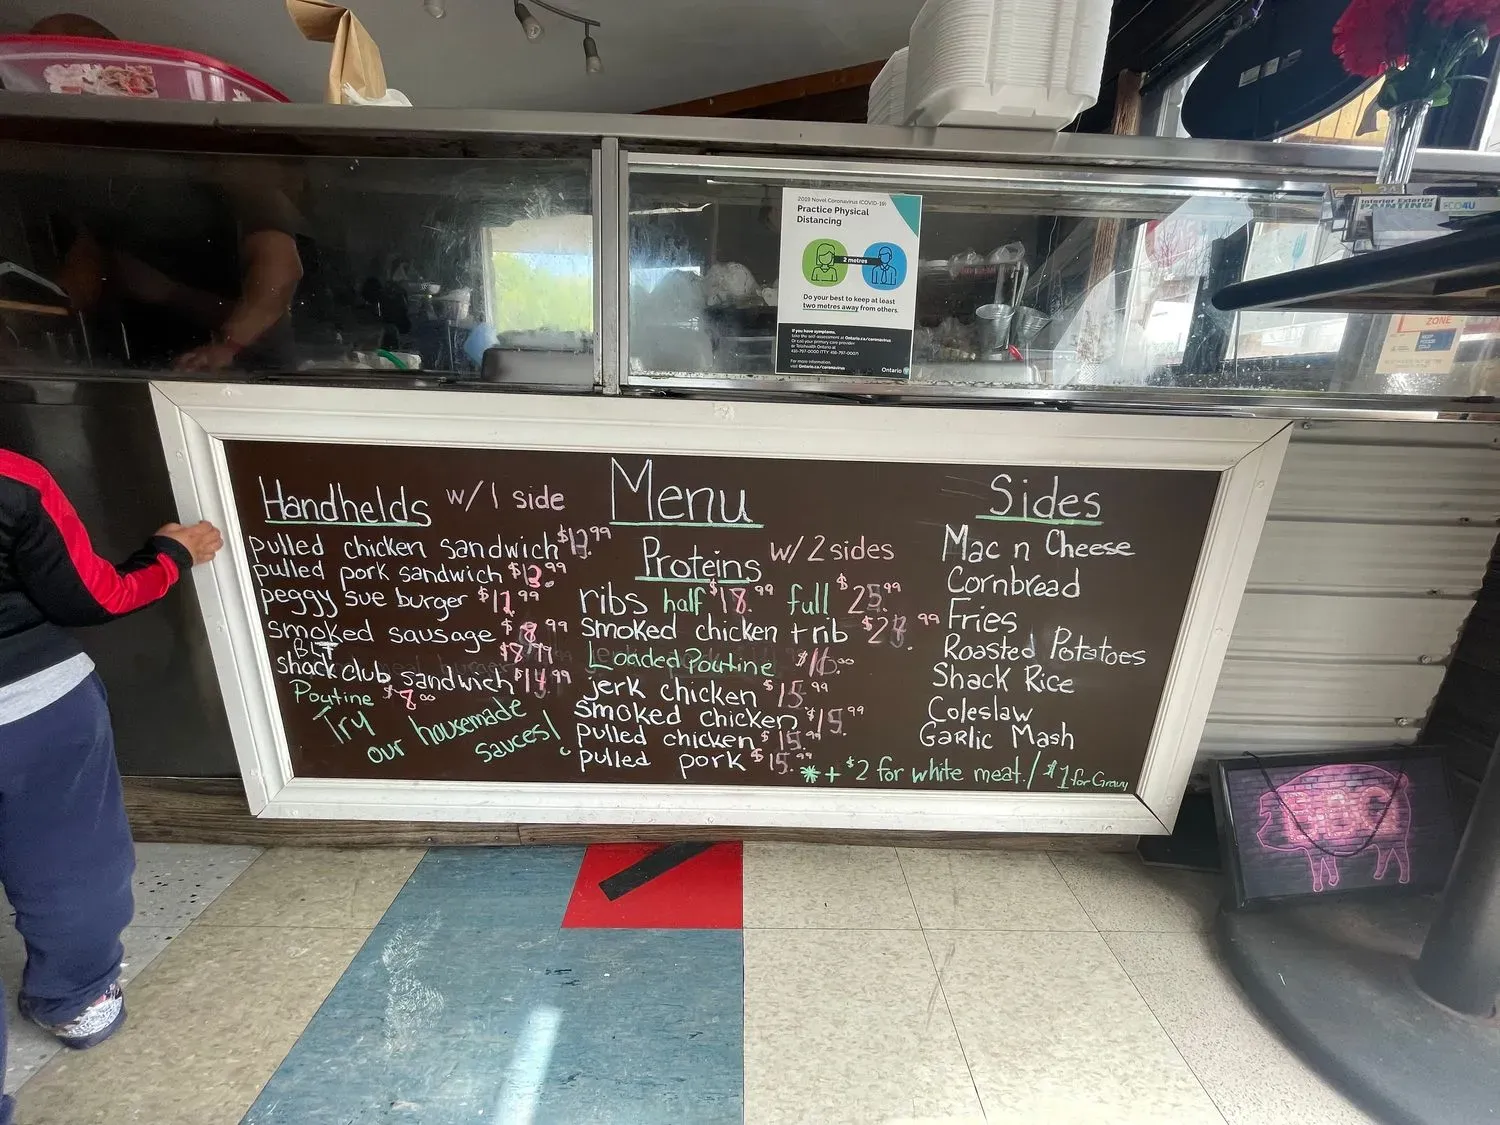 2019 Novel Coronavirus (COVID-19)
Practice Physical
Distancing
2 metres
Do your best to keep at least
two metres away from others.
If you have symptoms,
take the self-assessment at Ontario.ca/coronavirus
Or call your primary care provider
or Telehealth Ontario at
416-797-0000 (TTY: 416-797-0007)
For more information,
visit Ontario.ca/coronavirus
Ontario
Interior Exterior
PAINTING
ECO4U
ZONE
Menu
Handhelds w/ 1 side
pulled chicken sandwich $13.99
pulled pork sandwich $13.99
peggy sue burger $11.99
smoked sausage $8.99
BLT $8.99
shack club sandwich $14.99
Poutine $8.00
Try
our housemade
sauces!
Proteins w/ 2 sides
ribs half $18.99 full $25.99
smoked chicken + rib $ .99
Loaded Poutine $16.00
jerk chicken $15.99
smoked chicken $15.99
pulled chicken $15.99
pulled pork $15.99
Sides
Mac n Cheese
Cornbread
Fries
Roasted Potatoes
Shack Rice
Coleslaw
Garlic Mash
*+ $2 for white meat. / $1 for Gravy
BBQ